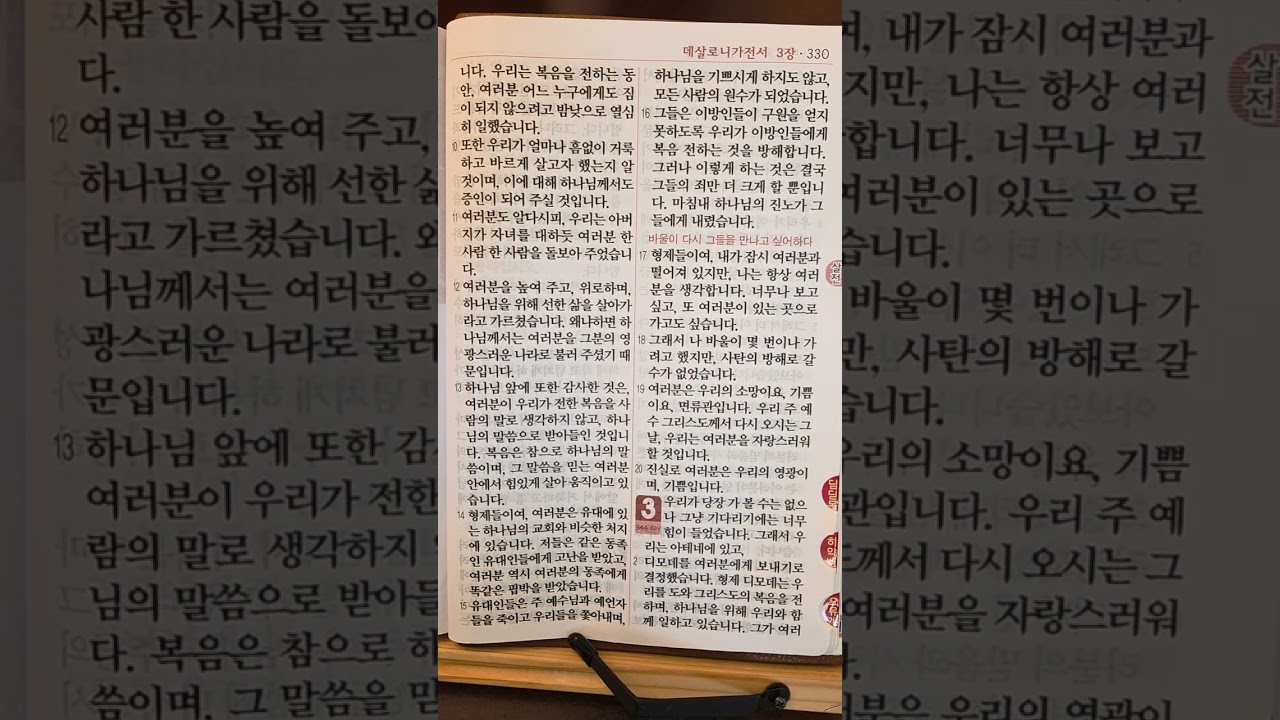 데살로니가전서 3장 · 330
니다. 우리는 복음을 전하는 동
안, 여러분 어느 누구에게도 짐
이 되지 않으려고 밤낮으로 열심
히 일했습니다.
10 또한 우리가 얼마나 흠없이 거룩
하고 바르게 살고자 했는지 알
것이며, 이에 대해 하나님께서도
증인이 되어 주실 것입니다.
11 여러분도 알다시피, 우리는 아버
지가 자녀를 대하듯 여러분 한
사람 한 사람을 돌보아 주었습니
다.
12 여러분을 높여 주고, 위로하며,
하나님을 위해 선한 삶을 살아가
라고 가르쳤습니다. 왜냐하면 하
나님께서는 여러분을 그분의 영
광스러운 나라로 불러 주셨기 때
문입니다.
13 하나님 앞에 또한 감사한 것은,
여러분이 우리가 전한 복음을 사
람의 말로 생각하지 않고, 하나
님의 말씀으로 받아들인 것입니
다. 복음은 참으로 하나님의 말
씀이며, 그 말씀을 믿는 여러분
안에서 힘있게 살아 움직이고 있
습니다.
14 형제들이여, 여러분은 유대에 있
는 하나님의 교회와 비슷한 처지
에 있습니다. 저들은 같은 동족
인 유대인들에게 고난을 받았고,
여러분 역시 여러분의 동족에게
똑같은 핍박을 받았습니다.
15 유대인들은 주 예수님과 예언자
들을 죽이고 우리들을 쫓아내며,
하나님을 기쁘시게 하지도 않고,
모든 사람의 원수가 되었습니다.
16 그들은 이방인들이 구원을 얻지
못하도록 우리가 이방인들에게
복음 전하는 것을 방해합니다.
그러나 이렇게 하는 것은 결국
그들의 죄만 더 크게 할 뿐입니
다. 마침내 하나님의 진노가 그
들에게 내렸습니다.
바울이 다시 그들을 만나고 싶어하다
17 형제들이여, 내가 잠시 여러분과
떨어져 있지만, 나는 항상 여러
분을 생각합니다. 너무나 보고
싶고, 또 여러분이 있는 곳으로
가고도 싶습니다.
18 그래서 나 바울이 몇 번이나 가
려고 했지만, 사탄의 방해로 갈
수가 없었습니다.
19 여러분은 우리의 소망이요, 기쁨
이요, 면류관입니다. 우리 주 예
수 그리스도께서 다시 오시는 그
날, 우리는 여러분을 자랑스러워
할 것입니다.
20 진실로 여러분은 우리의 영광이
며, 기쁨입니다.
3 우리가 당장 가 볼 수는 없으
나 그냥 기다리기에는 너무
344 day 힘이 들었습니다. 그래서 우
리는 아테네에 있고,
2 디모데를 여러분에게 보내기로
결정했습니다. 형제 디모데는 우
리를 도와 그리스도의 복음을 전
하며, 하나님을 위해 우리와 함
께 일하고 있습니다. 그가 여러
살전